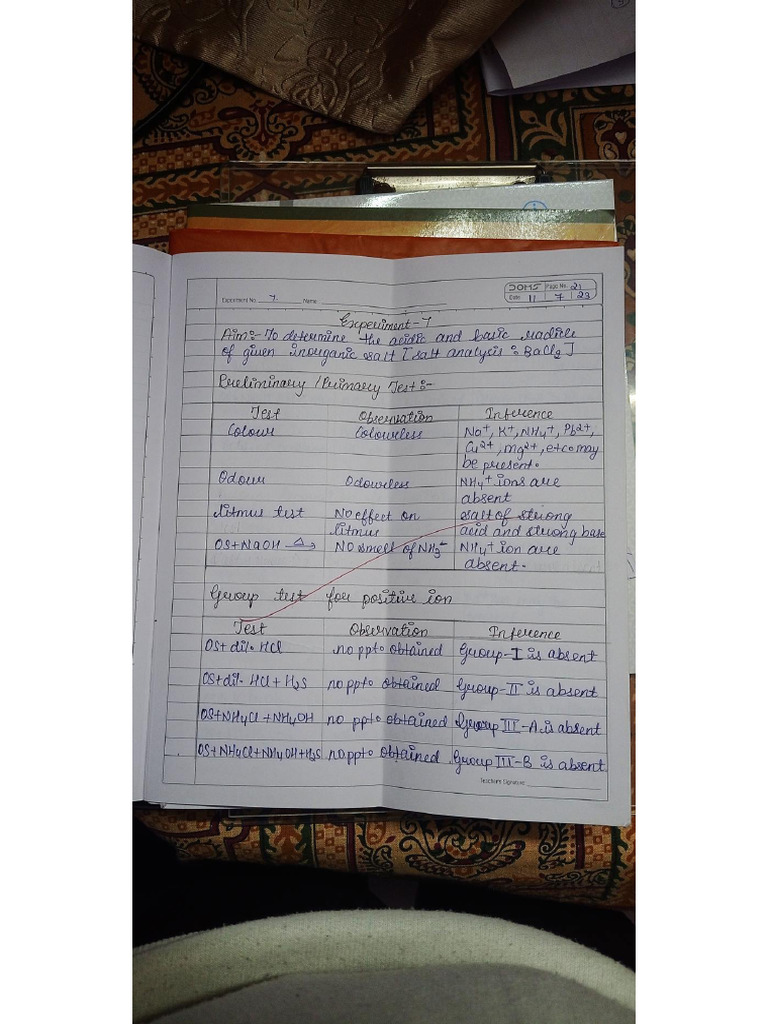 DOMS Page No. 21
Experiment No. 7. Name
Date 11 7 23
Experiment-7
Aim:- To determine the acidic and basic radicle
of given inorganic salt [salt analysis : BaCl2]
Preliminary / Primary Test:-
Test Observation Inference
Colour Colourless Na+, K+, NH4+, Pb2+,
Cu2+, mg2+, etc. may
be present.
Odour Odourless NH4+ ions are
absent
litmus test NO effect on salt of strong
litmus acid and strong base
OS+NaOH △→ NO smell of NH3 NH4+ ion are
absent.
Group test for positive ion
Test Observation Inference
OS+dil. HCl no ppt. obtained Group-I is absent
OS+dil. HCl + H2S no ppt. obtained Group-II is absent
OS+NH4Cl+NH4OH no ppt. obtained Group III-A is absent
OS+NH4Cl+NH4OH+H2S no ppt. obtained Group III-B is absent
Teacher's Signature